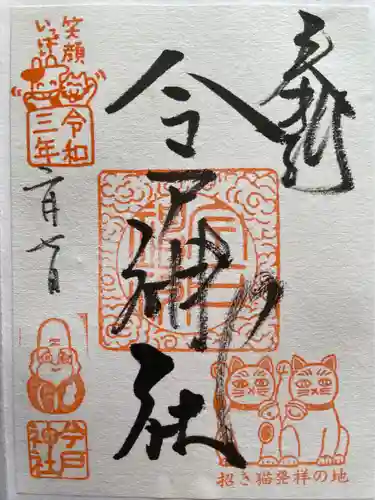 奉拝
今戸神社
笑顔
いっぱい
令和
三年
二月七日
今戸
神社
招き猫発祥の地